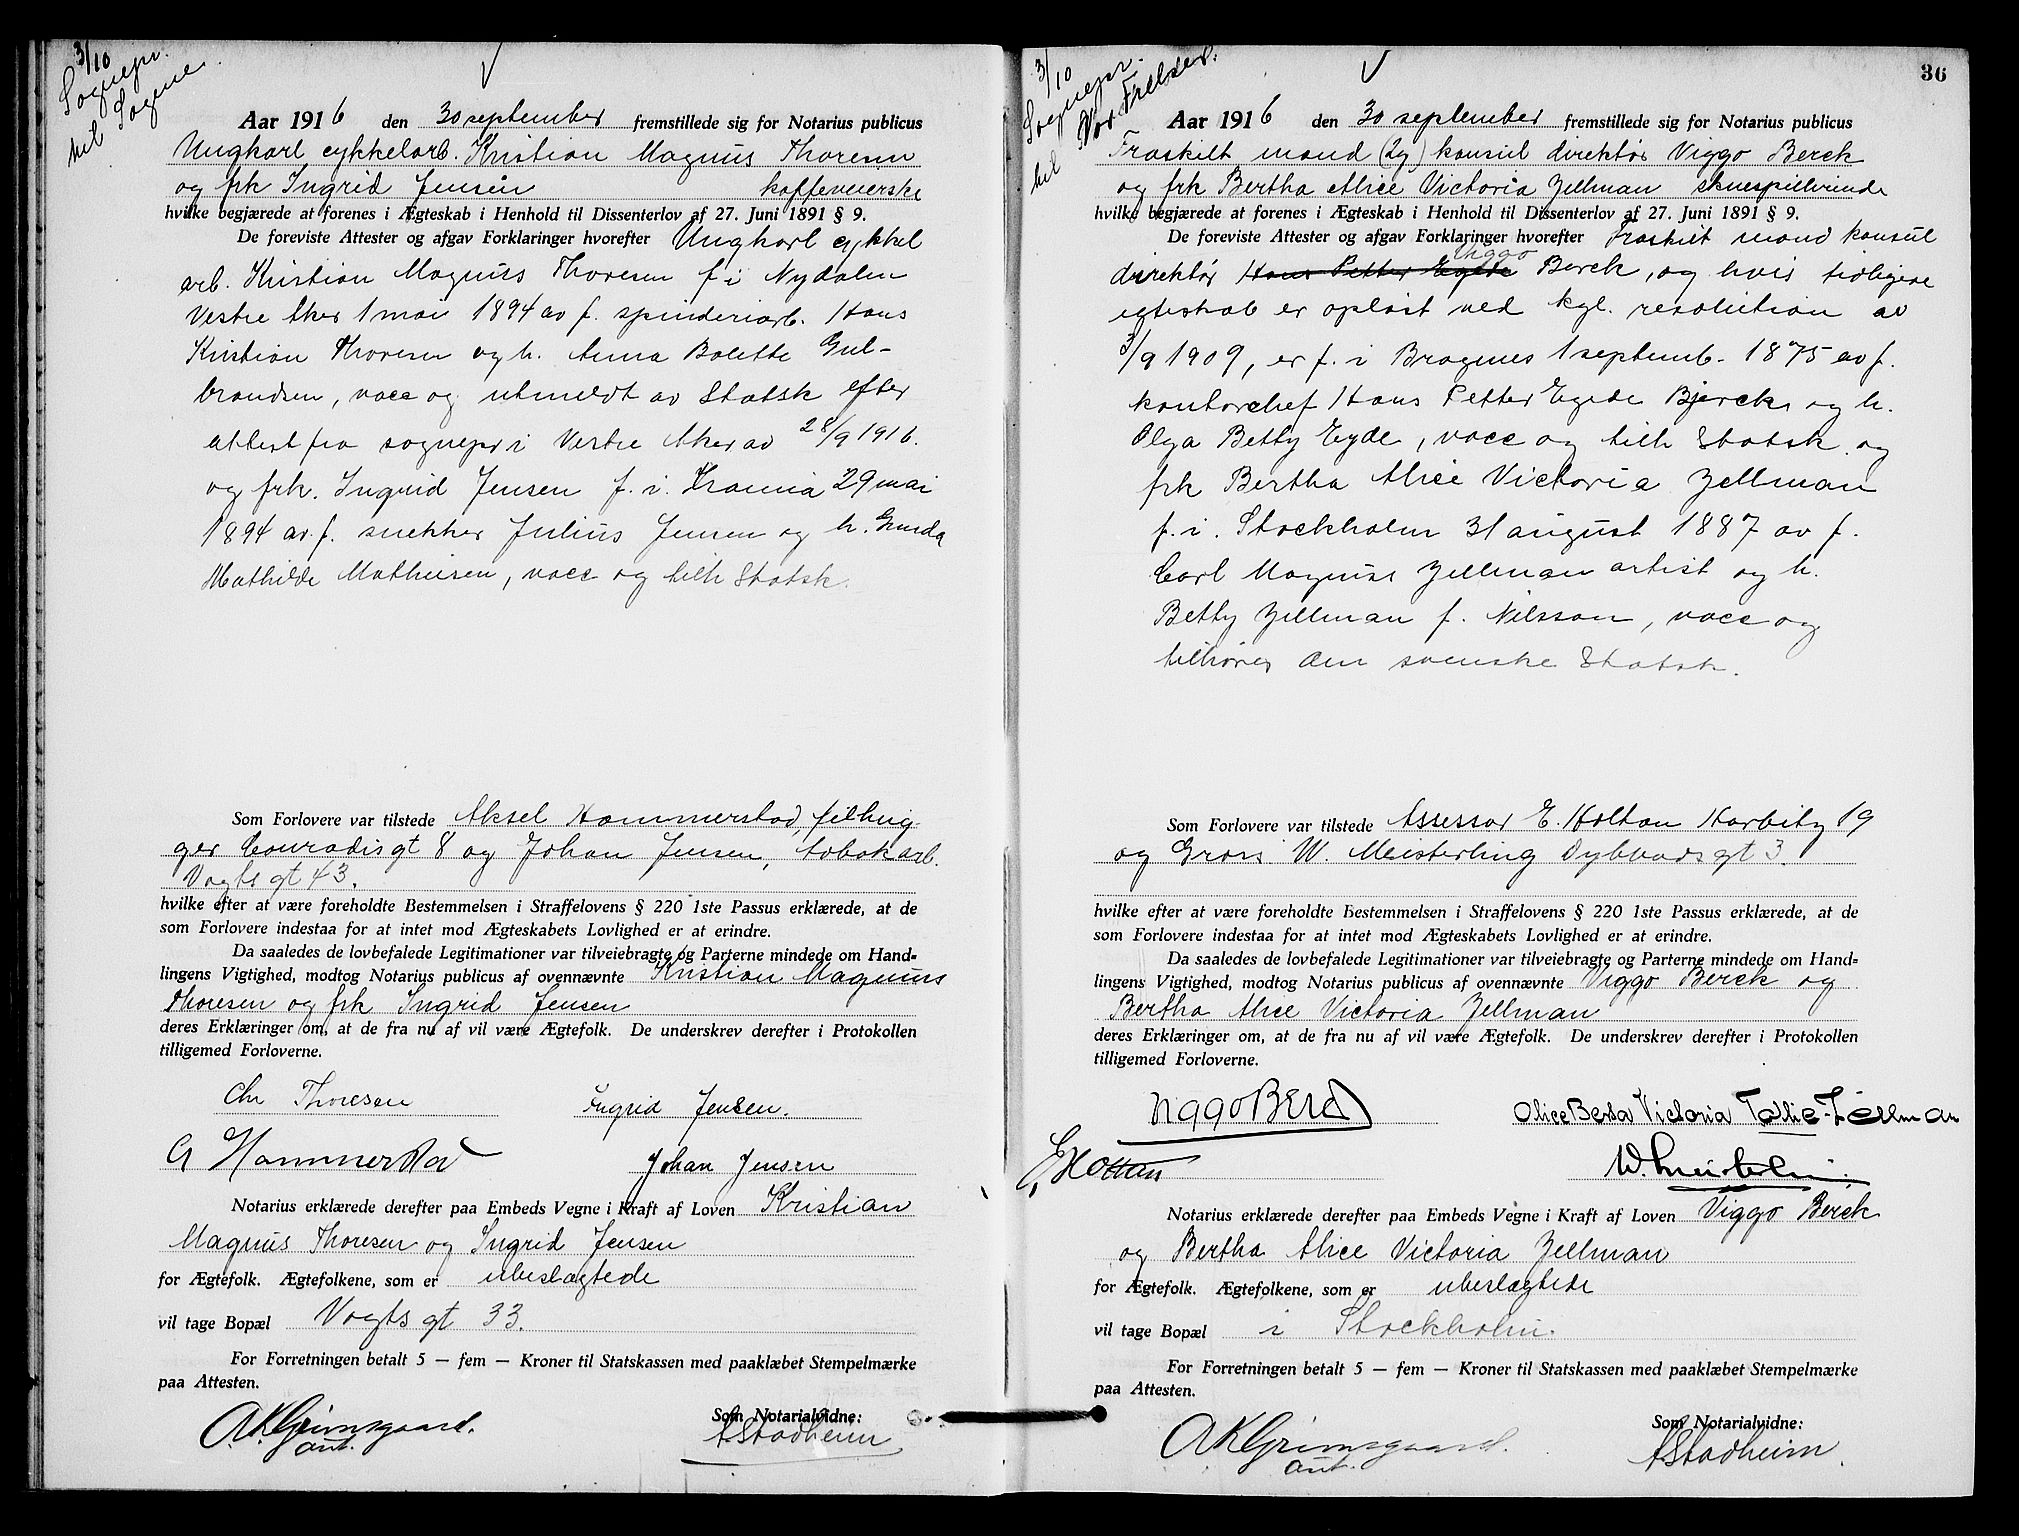 3/10
Sognepr.
til Sagene.
Aar 1916 den 30 september fremstillede sig for Notarius publicus
Ungkarl cykkelarb. Kristian Magnus Thoresen
og frk Ingrid Jensen kaffeveierske
hvilke begjærede at forenes i Ægteskab i Henhold til Dissenterlov af 27. Juni 1891 § 9.
De foreviste Attester og afgav Forklaringer hvorefter Ungkarl cykkel
arb. Kristian Magnus Thoresen f i Nydalen
Vestre Aker 1 mai 1894 av f. spinderiarb. Hans
Kristian Thoresen og h. Anna Bolette Gul-
brandsen, vacc og utmeldt av Statsk efter
attest fra sognepr i Vestre Aker av 28/9 1916.
og frk. Ingrid Jensen f. i. Krania 29 mai
1894 av f. snekker Julius Jensen og h. Gunda
Mathilde Mathisen, vacc og tilh Statsk.
Som Forlovere var tilstede Aksel Hammerstad, filhug-
ger Conradis gt 8 og Johan Jensen, tobakarb.
Vogts gt 43.
hvilke efter at være foreholdte Bestemmelsen i Straffelovens § 220 1ste Passus erklærede, at de
som Forlovere indestaa for at intet mod Ægteskabets Lovlighed er at erindre.
Da saaledes de lovbefalede Legitimationer var tilveiebragte og Parterne mindede om Hand-
lingens Vigtighed, modtog Notarius publicus af ovennævnte Kristian Magnus
Thoresen og frk Ingrid Jensen
deres Erklæringer om, at de fra nu af vil være Ægtefolk. De underskrev derefter i Protokollen
tilligemed Forloverne.
Chr Thoresen Ingrid Jensen.
A Hammerstad Johan Jensen
Notarius erklærede derefter paa Embeds Vegne i Kraft af Loven Kristian
Magnus Thoresen og Ingrid Jensen
for Ægtefolk. Ægtefolkene, som er ubeslægtede
vil tage Bopæl Vogts gt 33.
For Forretningen betalt 5 — fem — Kroner til Statskassen med paaklæbet Stempelmærke
paa Attesten.
Som Notarialvidne:
A.K.Grimsgaard. AStadheim
aut.
36
3/10
Sognepr.
til Vor Frelser.
Aar 1916 den 30 september fremstillede sig for Notarius publicus
Fraskilt mand (2g) konsul direktør Viggo Berck
og frk Bertha Alice Victoria Zellman skuespillerinde
hvilke begjærede at forenes i Ægteskab i Henhold til Dissenterlov af 27. Juni 1891 § 9.
De foreviste Attester og afgav Forklaringer hvorefter Fraskilt mand konsul
Viggo
direktør Hans Petter Egede Berck, og hvis tidligere
egteskab er opløst ved kgl. resolution av
3/9 1909, er f. i Bragnes 1 septemb. 1875 av f.
kontorchef Hans Petter Egede Bjerck og h.
Olga Betty Eyde, vacc og tilh Statsk. og
frk Bertha Alice Victoria Zellman
f. i. Stockholm 31 august 1887 av f.
Carl Magnus Zellman artist og h.
Betty Zellman f. Nilsson, vacc og
tilhører den svenske Statsk.
Som Forlovere var tilstede Assessor E. Holtan Harbitz 19
og Gross W. Meisterling Dybvads gt 3.
hvilke efter at være foreholdte Bestemmelsen i Straffelovens § 220 1ste Passus erklærede, at de
som Forlovere indestaa for at intet mod Ægteskabets Lovlighed er at erindre.
Da saaledes de lovbefalede Legitimationer var tilveiebragte og Parterne mindede om Hand-
lingens Vigtighed, modtog Notarius publicus af ovennævnte Viggo Berck og
Bertha Alice Victoria Zellman
deres Erklæringer om, at de fra nu af vil være Ægtefolk. De underskrev derefter i Protokollen
tilligemed Forloverne.
Viggo Berck Alice Berta Victoria Tollie-Zellman
E. Holtan W. Meisterling.
Notarius erklærede derefter paa Embeds Vegne i Kraft af Loven Viggo Berck
og Bertha Alice Victoria Zellman
for Ægtefolk. Ægtefolkene, som er ubeslægtede
vil tage Bopæl i Stockholm.
For Forretningen betalt 5 — fem — Kroner til Statskassen med paaklæbet Stempelmærke
paa Attesten.
Som Notarialvidne:
AKGrimsgaard. AStadheim.
aut.